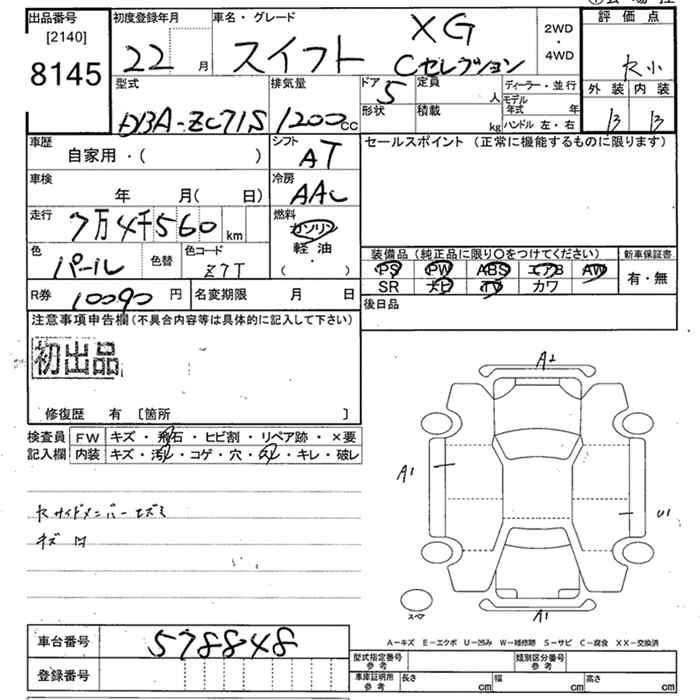 出品番号 初度登録年月 車名・グレード 評価点
[2140] 22 月 スイフト XG 2WD・4WD
8145 Cセレクション
型式 排気量 ドア 5 定員 人 ディーラー・並行 外装 内装
DBA-ZC71S 1200cc 形状 積載 kg モデル年式 年 B B
ハンドル 左・右
車歴 シフト セールスポイント (正常に機能するものに限ります)
自家用・( ) AT
車検 冷房
年 月( 日) AAC
走行 燃料
7万4千560 km ガソリン
軽油
・
( )
色 色替 色コード 装備品 (純正品に限り〇をつけてください) 新車保証書
パール Z7T PS PW ABS エアB AW 有・無
SR ナビ TV カワ
R券 10090 円 名変期限 月 日 後日品
注意事項申告欄 (不具合内容等は具体的に記入して下さい)
初出品
修復歴 有 [箇所 ]
検査員 FW キズ・飛石・ヒビ割・リペア跡・×要
記入欄 内装 キズ・汚レ・コゲ・穴・スレ・キレ・破レ
サイドメンバー
キズ 凹
A2
A1
U1
A1
スペア
車台番号 578848
A-キズ E-エクボ U-凹み W-補修跡 S-サビ C-腐食 XX-交換済
登録番号
型式指定番号 参考 類別区分番号 参考
車庫証明用 参考 長さ cm 幅 cm 高さ cm